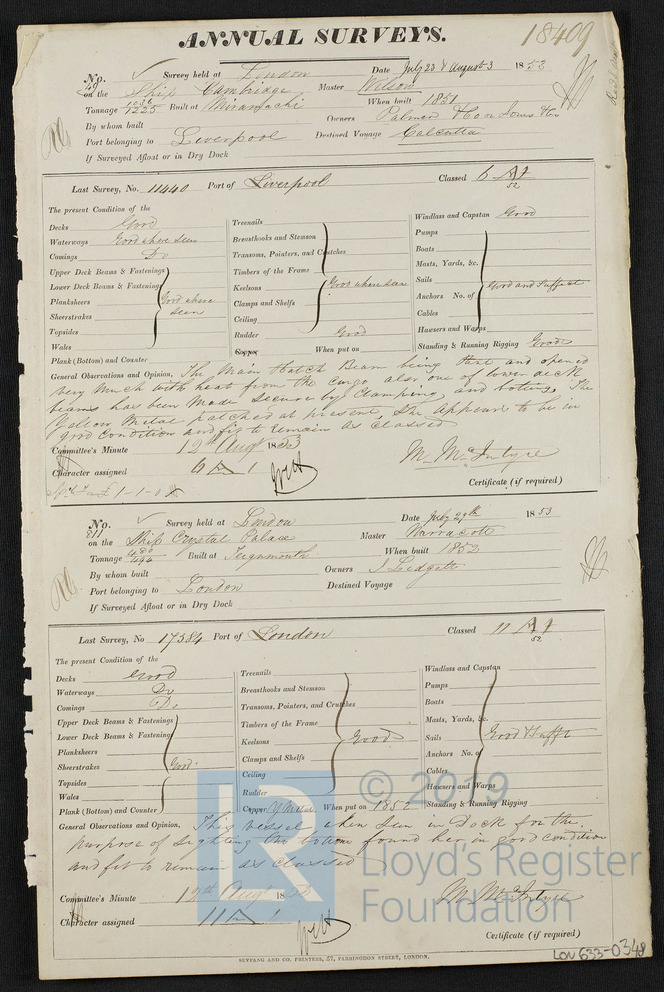 ANNUAL SURVEYS.
18409
No. 40 Survey held at London Date July 23 & August 3 1853
on the Ship Cambridge Master Wilson
Tonnage 1036 1225 Built at Miramachi When built 1851
By whom built Owners Palmer
Port belonging to Liverpool Destined Voyage Calcutta
If Surveyed Afloat or in Dry Dock
Last Survey, No. 11440 Port of Liverpool Classed 6 A 1 52
The present Condition of the
Decks Good
Waterways Good where seen
Comings Do
Upper Deck Beams & Fastenings
Lower Deck Beams & Fastenings
Planksheers Good where
Sheerstrakes seen
Topsides
Wales
Plank (Bottom) and Counter
Treenails
Breasthooks and Stemson
Transoms, Pointers, and Crutches
Timbers of the Frame
Keelsons Good where seen
Clamps and Shelfs
Ceiling
Rudder Good
Copper When put on
Windlass and Capstan Good
Pumps
Boats
Masts, Yards, &c.
Sails Good and Suffict
Anchors No. of
Cables
Hawsers and Warps
Standing & Running Rigging Good
General Observations and Opinion, The Main Hatch Beam being and opened
very much with heat from the cargo also one of lower deck
beams has been made secure by Clamping and bolting. The
Yellow Metal patched at present. She appears to be in
good condition and fit to remain as Classed
Committee's Minute 12th Augt 1853
Character assigned 6 A 1
M. McIntyre
£1-1-0
Certificate (if required)
No. 311 Survey held at London Date July 29th 1853
on the Ship Crystal Palace Master
Tonnage 480 496 Built at Teignmouth When built 1852
By whom built Owners J Lidgett
Port belonging to London Destined Voyage
If Surveyed Afloat or in Dry Dock
Last Survey, No 17384 Port of London Classed 11 A 1 52
The present Condition of the
Decks Good
Waterways Do
Comings Do
Upper Deck Beams & Fastenings
Lower Deck Beams & Fastenings
Planksheers
Sheerstrakes Good
Topsides
Wales
Plank (Bottom) and Counter
Treenails
Breasthooks and Stemson
Transoms, Pointers, and Crutches
Timbers of the Frame
Keelsons Good
Clamps and Shelfs
Ceiling
Rudder
Copper Y Metal When put on 1852
Windlass and Capstan
Pumps
Boats
Masts, Yards, &c.
Sails Good & Sufft
Anchors No. of
Cables
Hawsers and Warps
Standing & Running Rigging
General Observations and Opinion, This vessel when seen in Dock for the
purpose of sighting the bottom found her in good condition
and fit to remain as classed
Committee's Minute 12th Augt 1853
Character assigned 11 A 1
M. McIntyre
Certificate (if required)
SEYFANG AND CO. PRINTERS, 57, FARRINGDON STREET, LONDON.
LON 633-0348
© 2019
Lloyd's Register
Foundation